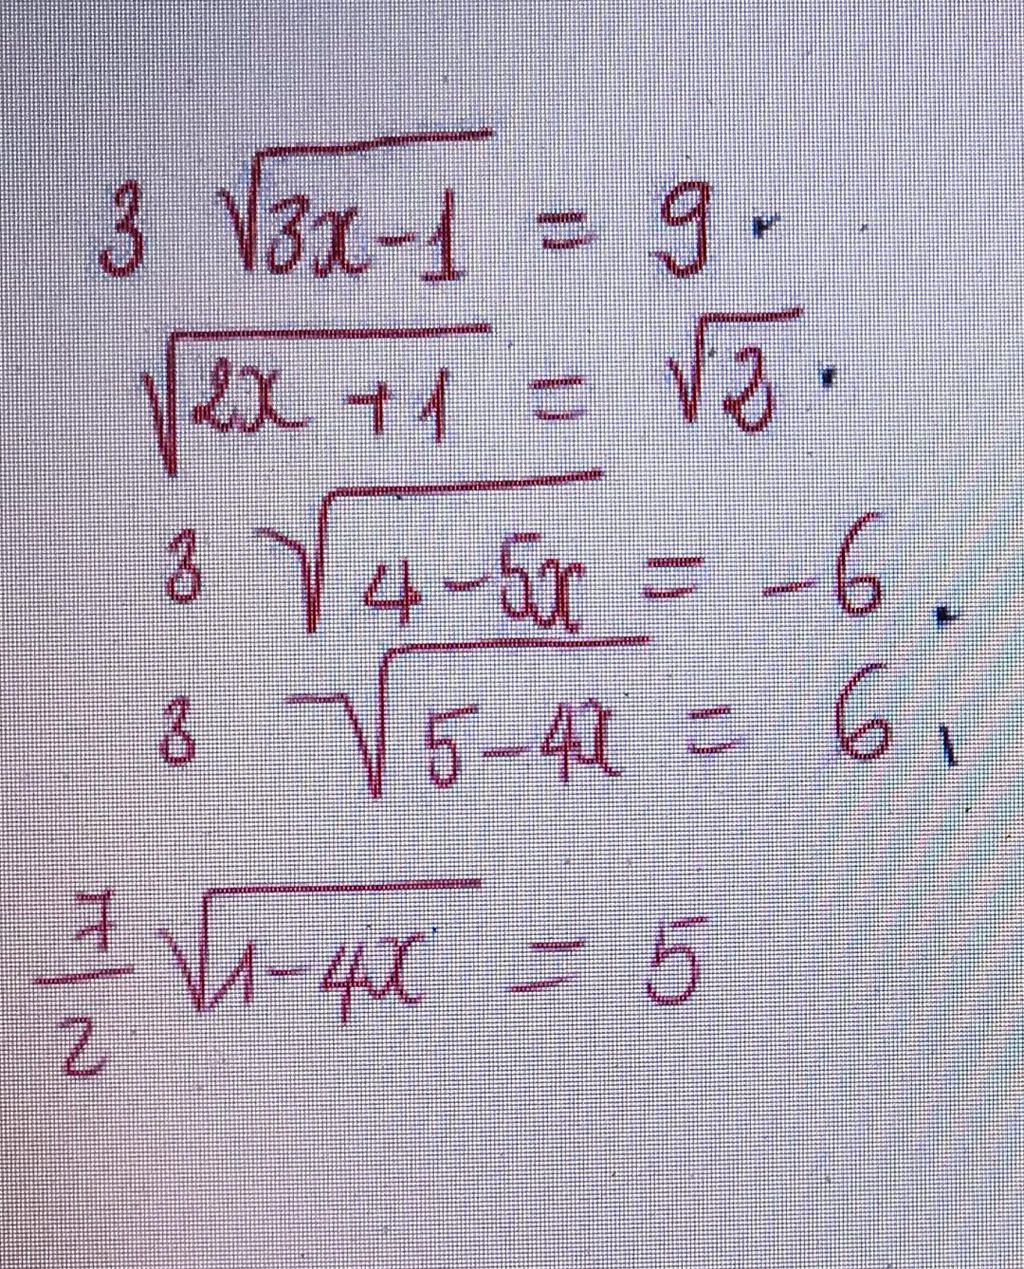 3 √(3x-1) = 9.
√(2x+1) = √3.
3 √(4-5x) = -6.
3 √(5-4x) = 6,
7/2 √(1-4x) = 5